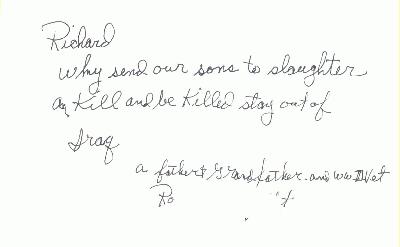 Richard
Why send our sons to slaughter
an Kill and be Killed stay out of
Iraq
a father & Grandfather. and WWII Vet
Ro